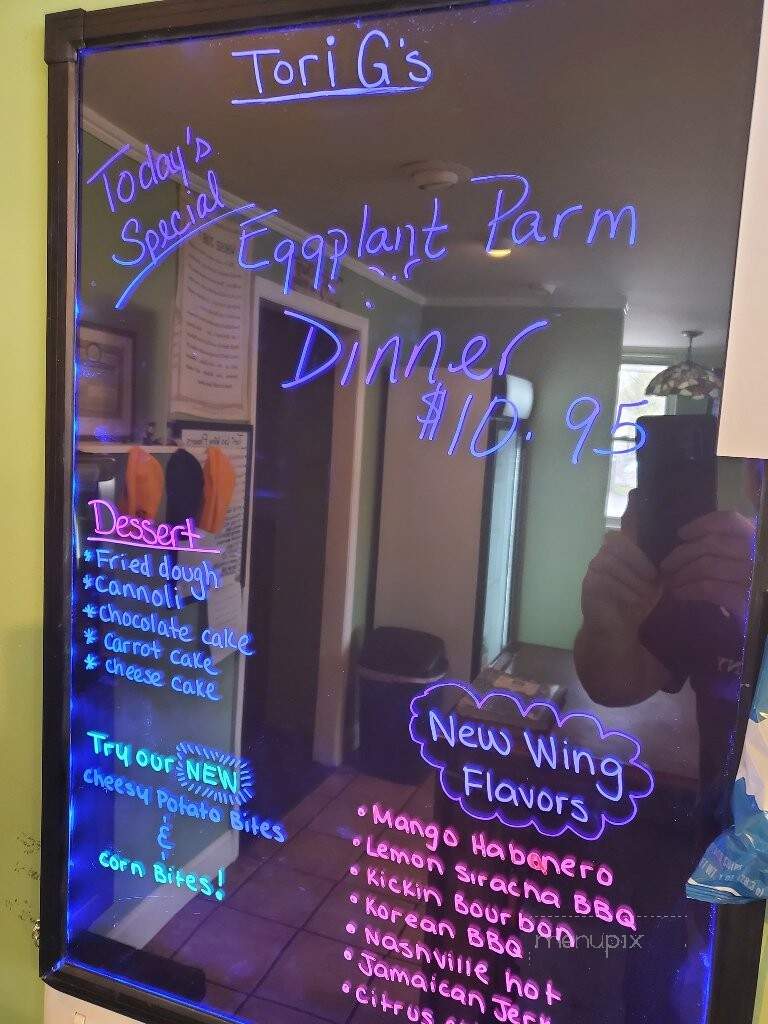 Tori G's
Today's
Special
Eggplant Parm
Dinner
$10.95
Dessert
*Fried dough
*Cannoli
*chocolate cake
* carrot cake
* cheese cake
Try our NEW
cheesy Potato Bites
&
corn Bites!
New Wing
Flavors
• Mango Habenero
• Lemon Siracha BBQ
• Kickin Bourbon
• Korean BBQ
• Nashville hot
• Jamaican Jerk
• Citrus
menupix